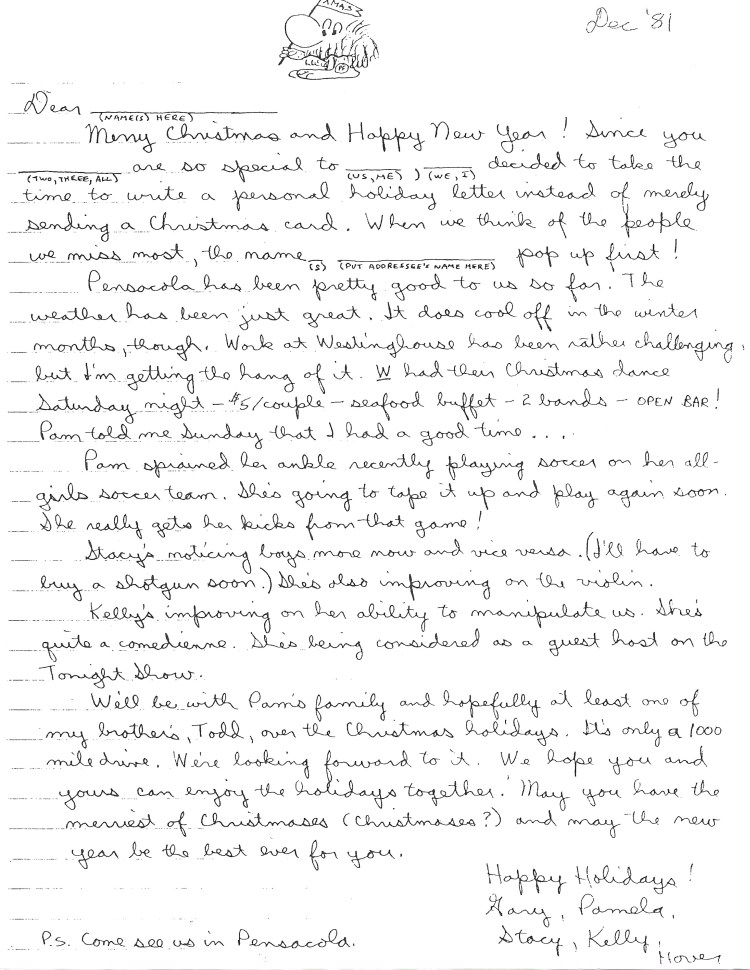 XMAS
Dec '81
Dear ____________
(NAME(S) HERE)
Merry Christmas and Happy New Year! Since you
____________ are so special to ______, ______ decided to take the
(TWO, THREE, ALL) (US, ME) (WE, I)
time to write a personal holiday letter instead of merely
sending a Christmas card. When we think of the people
we miss most, the name__ ____________ pop up first!
(S) (PUT ADDRESSEE'S NAME HERE)
Pensacola has been pretty good to us so far. The
weather has been just great. It does cool off in the winter
months, though. Work at Westinghouse has been rather challenging,
but I'm getting the hang of it. W had their Christmas dance
Saturday night - $5/couple - seafood buffet - 2 bands - OPEN BAR!
Pam told me Sunday that I had a good time . . . .
Pam sprained her ankle recently playing soccer on her all-
girls soccer team. She's going to tape it up and play again soon.
She really gets her kicks from that game!
Stacy's noticing boys more now and vice versa. (I'll have to
buy a shotgun soon.) She's also improving on the violin.
Kelly's improving on her ability to manipulate us. She's
quite a comedienne. She's being considered as a guest host on the
Tonight Show.
We'll be with Pam's family and hopefully at least one of
my brothers, Todd, over the Christmas holidays. It's only a 1000
mile drive. We're looking forward to it. We hope you and
yours can enjoy the holidays together. May you have the
merriest of Christmases (Christmases?) and may the new
year be the best ever for you.
Happy Holidays!
Gary, Pamela,
Stacy, Kelly,
Hover
P.S. Come see us in Pensacola.